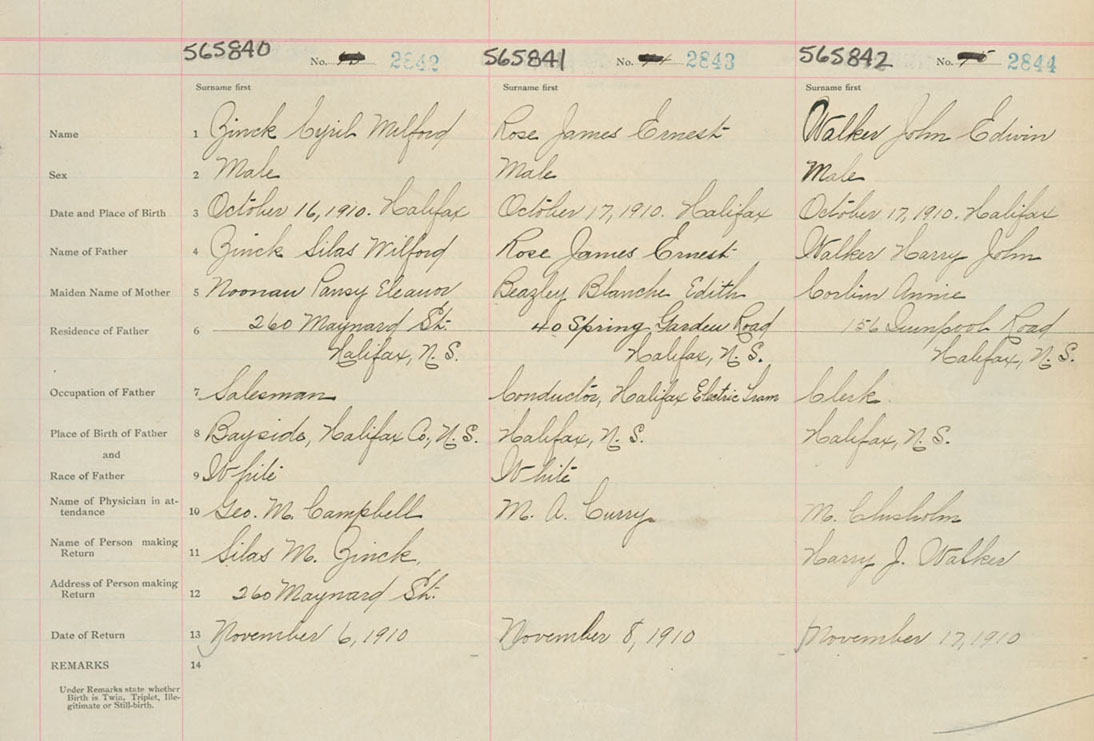 565840 No. 2842 565841 No. 2843 565842 No. 2844
Surname first Surname first Surname first
Name 1 Zinck Cyril Milford Rose James Ernest Walker John Edwin
Sex 2 Male Male Male
Date and Place of Birth 3 October 16, 1910. Halifax October 17, 1910. Halifax October 17, 1910. Halifax
Name of Father 4 Zinck Silas Wilford Rose James Ernest Walker Harry John
Maiden Name of Mother 5 Noonan Pansy Eleanor Beazley Blanche Edith Annie
Residence of Father 6 260 Maynard St. 40 Spring Garden Road 156 Road
Halifax, N.S. Halifax, N.S. Halifax, N.S.
Occupation of Father 7 Salesman Conductor, Halifax Electric Tram Clerk
Place of Birth of Father 8 Bayside, Halifax Co., N.S. Halifax, N.S. Halifax, N.S.
and
Race of Father 9 White White
Name of Physician in at-
tendance 10 Geo. M. Campbell M. A. Curry M. Chisholm
Name of Person making
Return 11 Silas M. Zinck Harry J. Walker
Address of Person making
Return 12 260 Maynard St.
Date of Return 13 November 6, 1910 November 8, 1910 November 17, 1910
REMARKS 14
Under Remarks state whether
Birth is Twin, Triplet, Ille-
gitimate or Still-birth.